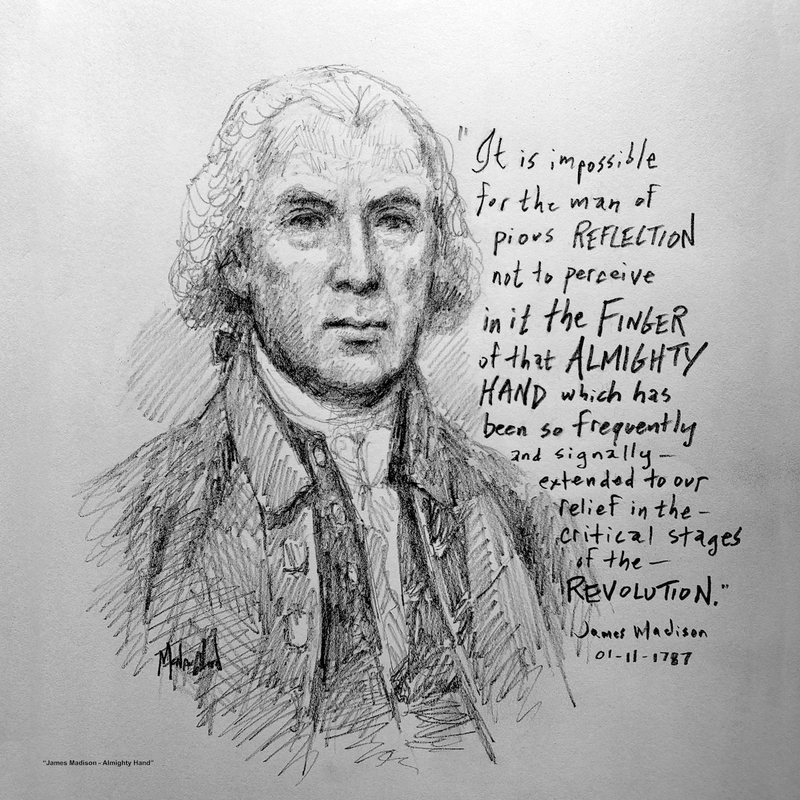 "It is impossible
for the man of
pious REFLECTION
not to perceive
in it the FINGER
of that ALMIGHTY
HAND which has
been so frequently
and signally—
extended to our
relief in the—
critical stages
of the—
REVOLUTION."
James Madison
01-11-1787
"James Madison - Almighty Hand"